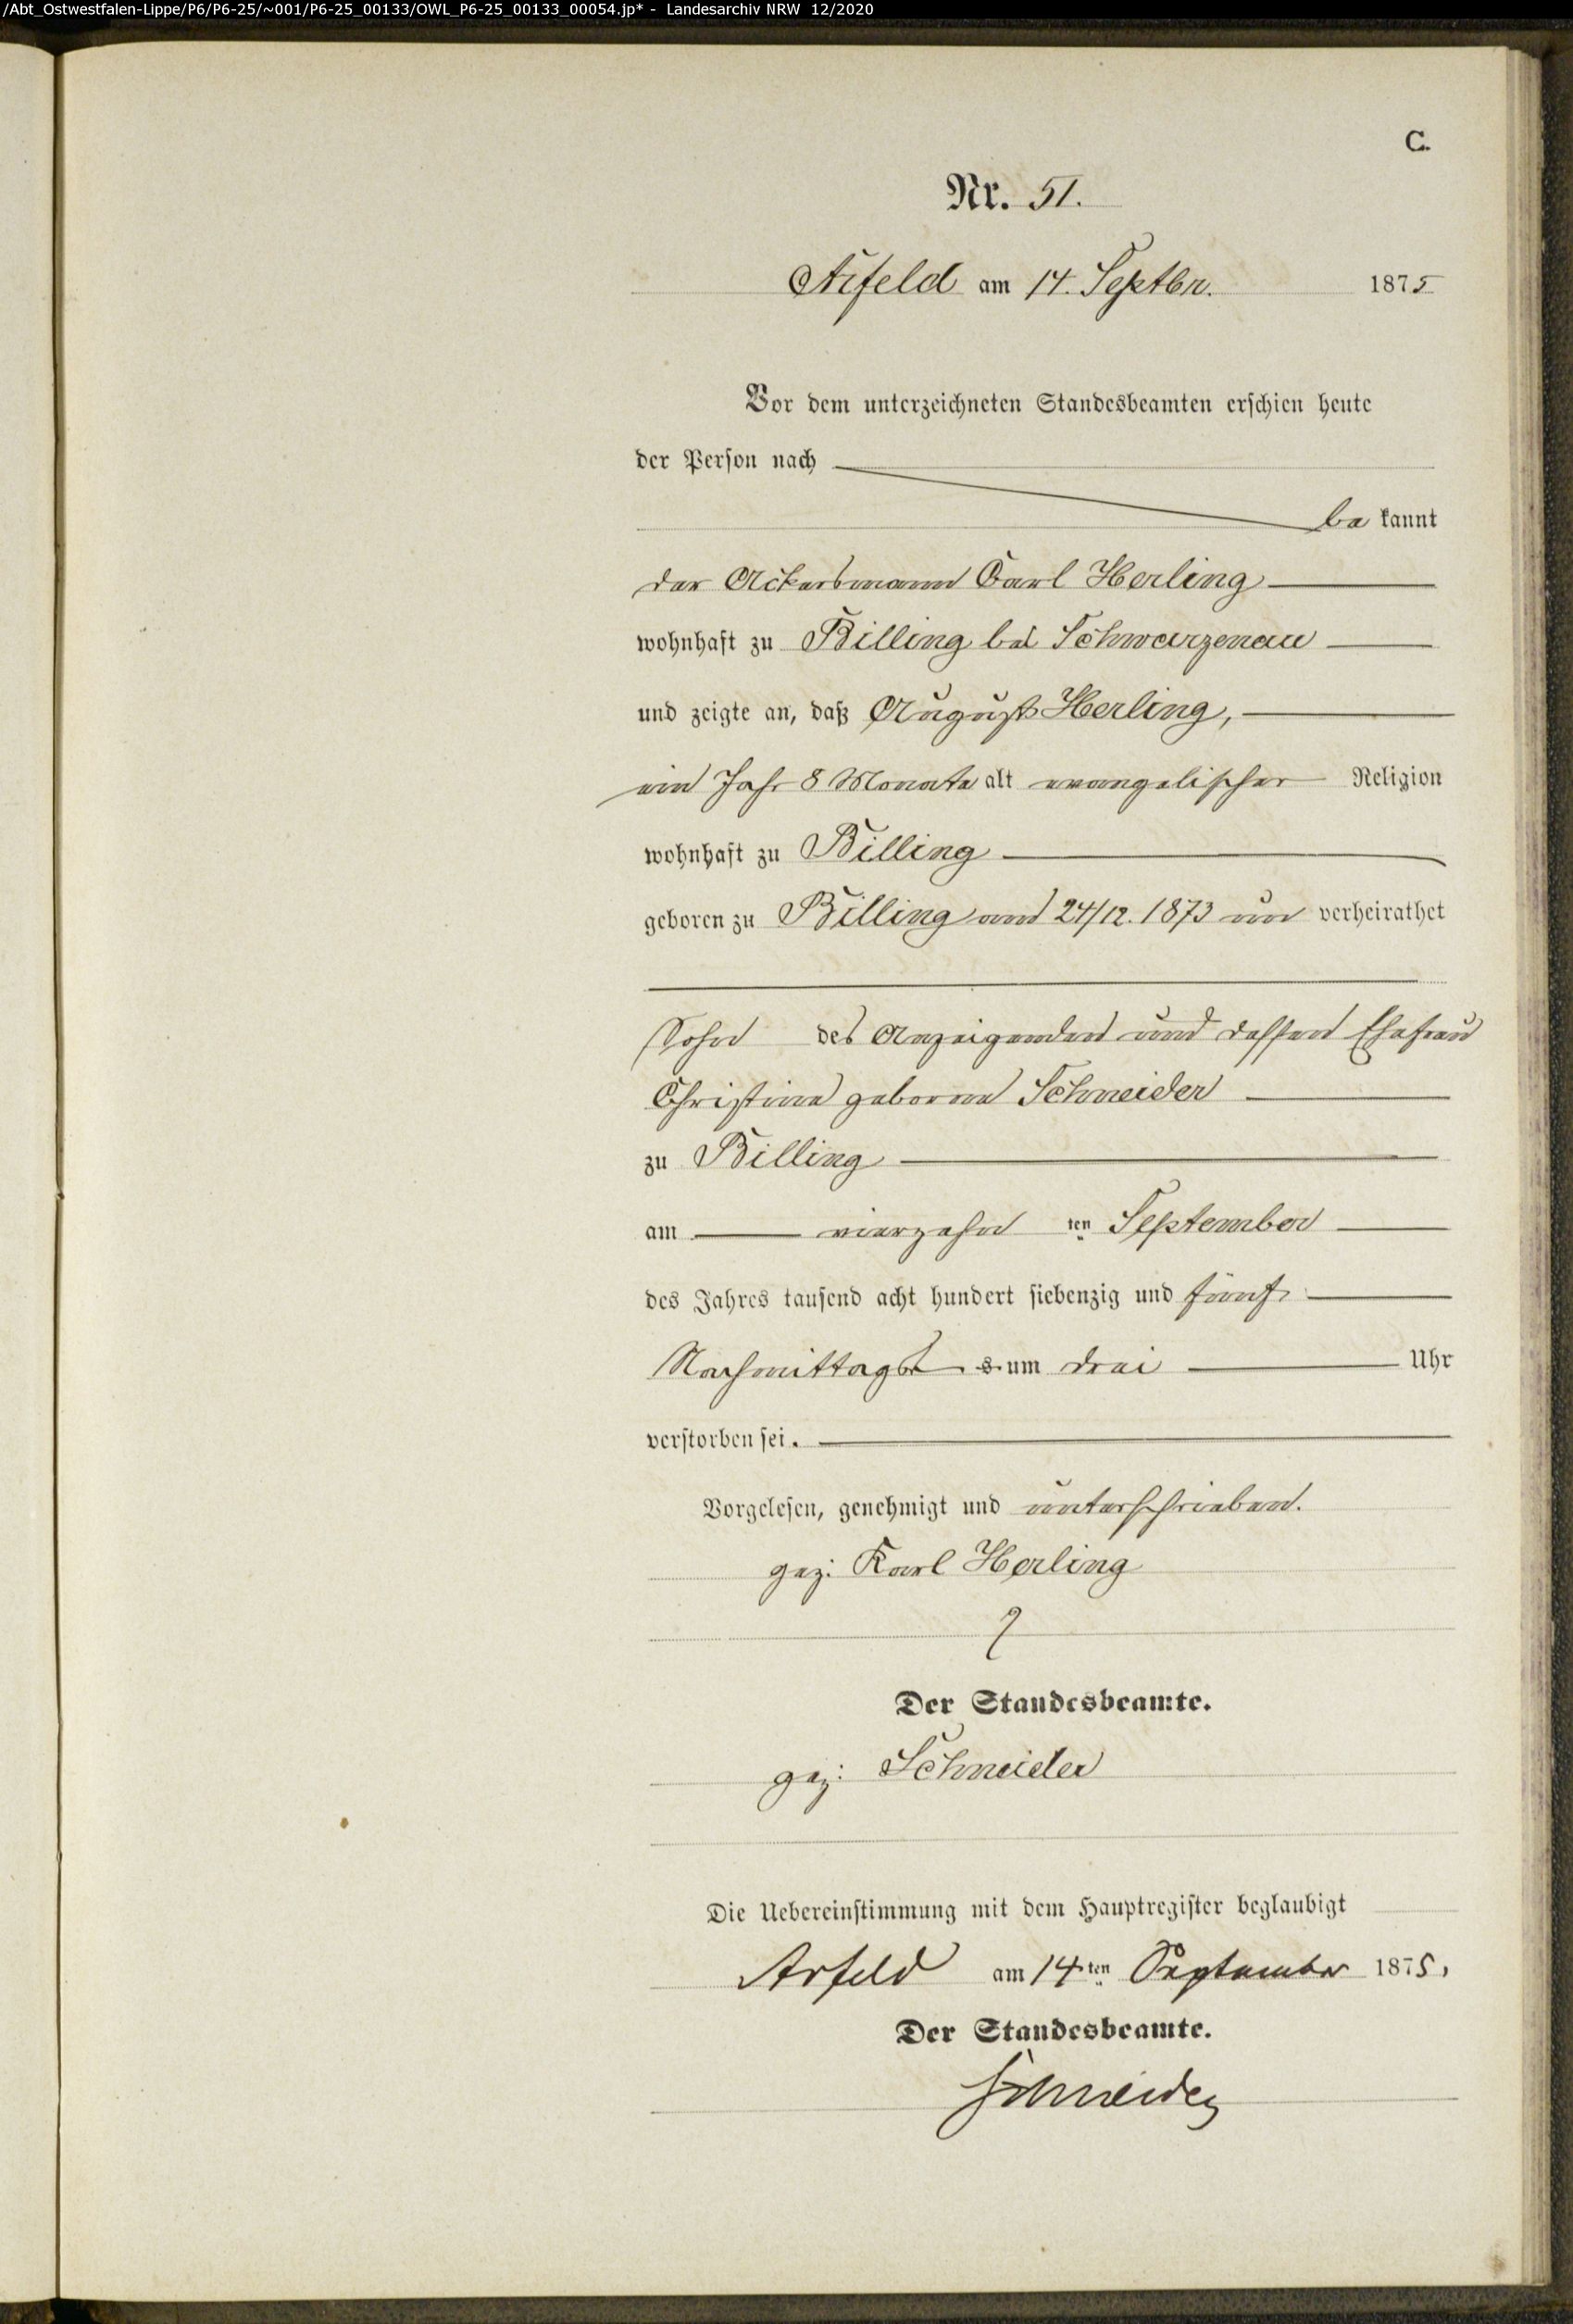 /Abt_Ostwestfalen-Lippe/P6/P6-25/~001/P6-25_00133/OWL_P6-25_00133_00054.jp* - Landesarchiv NRW 12/2020
C.
Nr. 51.
Arfeld am 14. Septbr. 1875
Vor dem unterzeichneten Standesbeamten erschien heute
der Person nach
be kannt
der Ackersmann Carl Herling
wohnhaft zu Billing bei Schwarzenau
und zeigte an, daß August Herling,
ein Jahr 8 Monate alt evangelischer Religion
wohnhaft zu Billing
geboren zu Billing am 24/12. 1873 un verheirathet
Sohn des Anzeigenden und dessen Ehefrau
Christine geborne Schneider
zu Billing
am vierzehn ten September
des Jahres tausend acht hundert siebenzig und fünf
Nachmittags um drei Uhr
verstorben sei.
Vorgelesen, genehmigt und unterschrieben.
gez: Karl Herling
Der Standesbeamte.
gez: Schneider
Die Uebereinstimmung mit dem Hauptregister beglaubigt
Arfeld am 14ten September 1875.
Der Standesbeamte.
Schneider